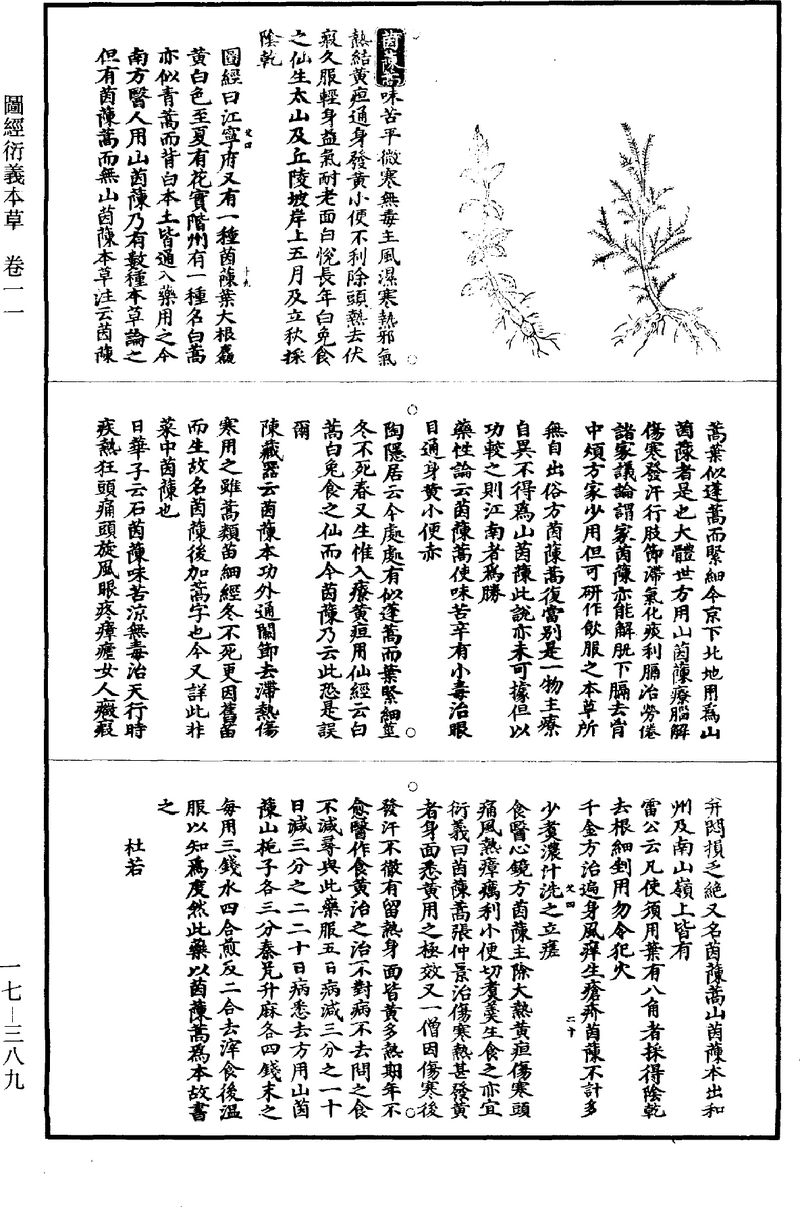 圖經衍義本草　卷一一
茵蔯蒿味苦平微寒無毒主風濕寒熱邪氣
熱結黃疸通身發黃小便不利除頭熱去伏
瘕久服輕身益氣耐老面白悅長年白兔食
之仙生太山及丘陵坡岸上五月及立秋採
陰乾
圖經曰江寧府又有一種茵蔯葉大根麤
黃白色至夏有花實階州有一種名白蒿
亦似青蒿而背白本土皆通入藥用之今
南方醫人用山茵蔯乃有數種本草論之
但有茵蔯蒿而無山茵蔯本草注云茵蔯
蒿葉似蓬蒿而緊細今京下北地用爲山
茵蔯者是也大體世方用山茵蔯療腦解
傷寒發汗行肢節滯氣化痰利膈治勞倦
諸家議論謂家茵蔯亦能解肌下膈去胷
中煩方家少用但可研作飲服之本草所
無自出俗方茵蔯蒿復當别是一物主療
自異不得爲山茵蔯此說亦未可據但以
功較之則江南者爲勝
藥性論云茵蔯蒿使味苦辛有小毒治眼
目通身黃小便赤
陶隱居云今處處有似蓬蒿而葉緊細莖
冬不死春又生惟入療黃疸用仙經云白
蒿白兔食之仙而今茵蔯乃云此恐是誤
爾
陳藏器云茵蔯本功外通關節去滯熱傷
寒用之雖蒿類苗細經冬不死更因舊苗
而生故名茵蔯後加蒿字也今又詳此非
菜中茵蔯也
日華子云石茵蔯味苦涼無毒治天行時
疾熱狂頭痛頭旋風眼疼瘴瘧女人癥瘕
并閃損乏絕又名茵蔯蒿山茵蔯本出和
州及南山嶺上皆有
雷公云凡使須用葉有八角者採得陰乾
去根細剉用勿令犯火
千金方治遍身風痒生瘡疥茵蔯不計多
少煮濃汁洗之立瘥
食醫心鏡方茵蔯主除大熱黃疸傷寒頭
痛風熱瘴癘利小便切煮羹生食之亦宜
衍義曰茵蔯蒿張仲景治傷寒熱甚發黃
者身面悉黃用之極效又一僧因傷寒後
發汗不徹有留熱身面皆黃多熱期年不
愈醫作食黃治之治不對病不去問之食
不減尋與此藥服五日病減三分之一十
日減三分之二二十日病悉去方用山茵
蔯山梔子各三分秦艽升麻各四錢末之
每用三錢水四合煎及二合去滓食後溫
服以知爲度然此藥以茵蔯蒿爲本故書
之
杜若
一七—三八九